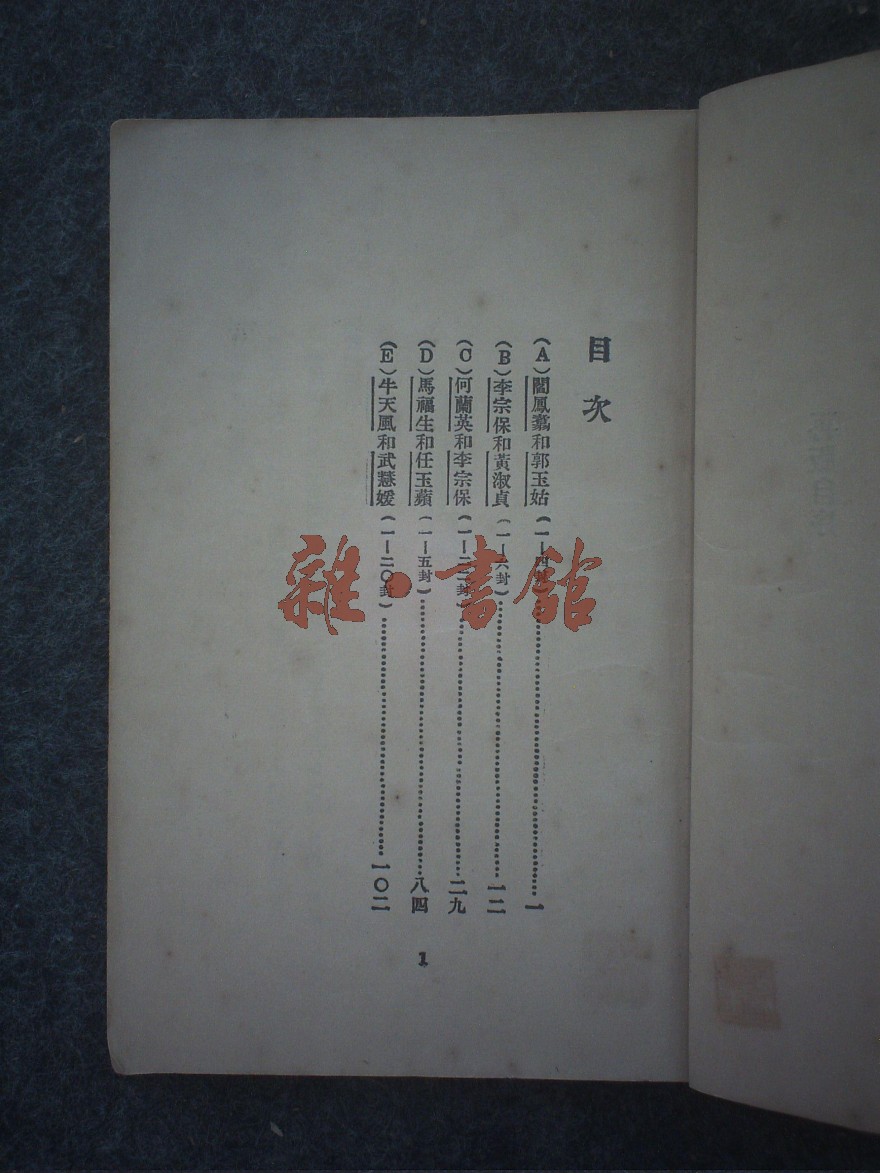 目次
(A)閻鳳翥和郭玉姑(一—四封)……一
(B)李宗保和黃淑貞(一—六封)……一二
(C)何蘭英和李宗保(一—二二封)……二九
(D)馬福生和任玉蘋(一—五封)……八四
(E)牛天風和武慧媛(一—二〇封)……一〇二
1
雜·書館